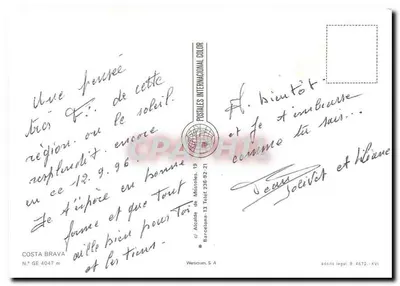 Une pensée
très de cette
région où le soleil
resplendit encore
en ce 12.9.96.
Je t'espère en bonne
forme et que tout
aille bien pour toi
et les tiens.
A bientôt
et je t'embrasse
comme tu sais...
Jean
Jolivet et Liliane
POSTALES INTERNACIONAL COLOR
CPAPHIL
c/ Alcalde de Móstoles, 13
Barcelona-13 Telef. 236-82-21
COSTA BRAVA
N.º GE 4047